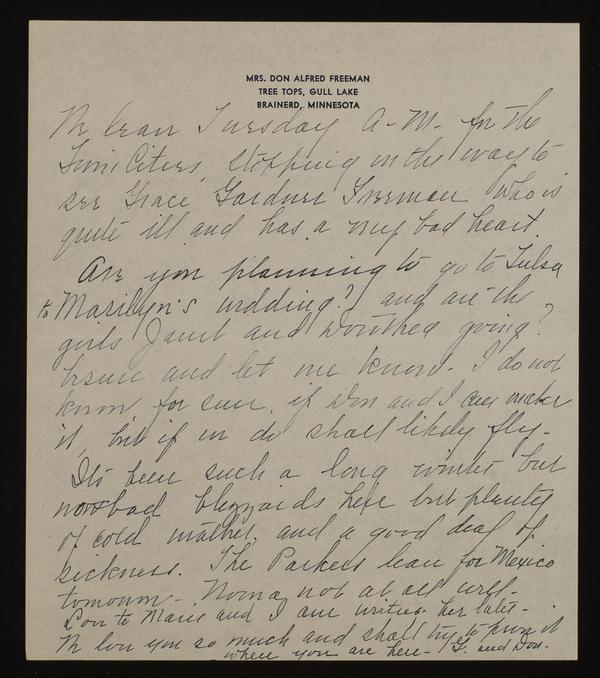 MRS. DON ALFRED FREEMAN
TREE TOPS, GULL LAKE
BRAINERD, MINNESOTA
We leave Tuesday A-M- for the
Twin Cities, stopping on the way to
see Grace Gardner Freeman who is
quite ill and has a very bad heart.
Are you planning to go to Tulsa
to Marilyn's wedding? and are the
girls Janet and Dorothea going?
and let me know - I do not
know, for sure, if Don and I can make
it, but if we do shall likely fly -
It's been such a long winter but
no bad blizzards here but plenty
of cold weather, and a good deal of
sickness. The Parkers leave for Mexico
tomorrow - Norma not at all well -
Love to Marie and I am writing her later -
We love you so much and shall try to prove it
where you are here - G. and Don -